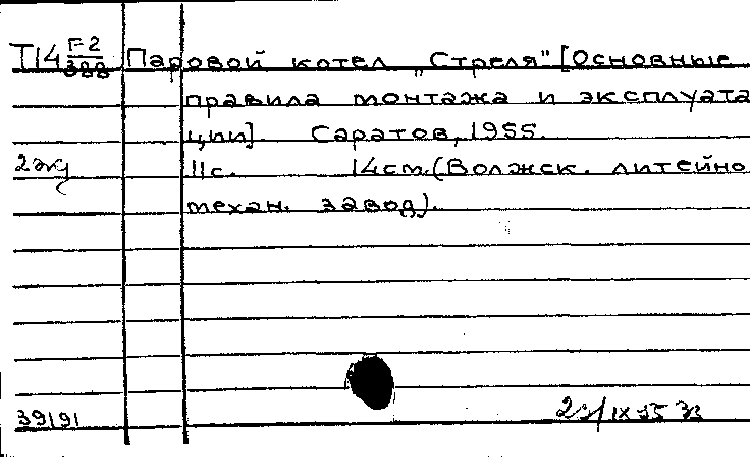 Т14 F-2 Паровой котел „Стреля" [Основные
388
правила монтажа и эксплуата
ции]. Саратов, 1955.
2 экз
11с. 14см. (Волжск. литейно
механ. завод).
39191